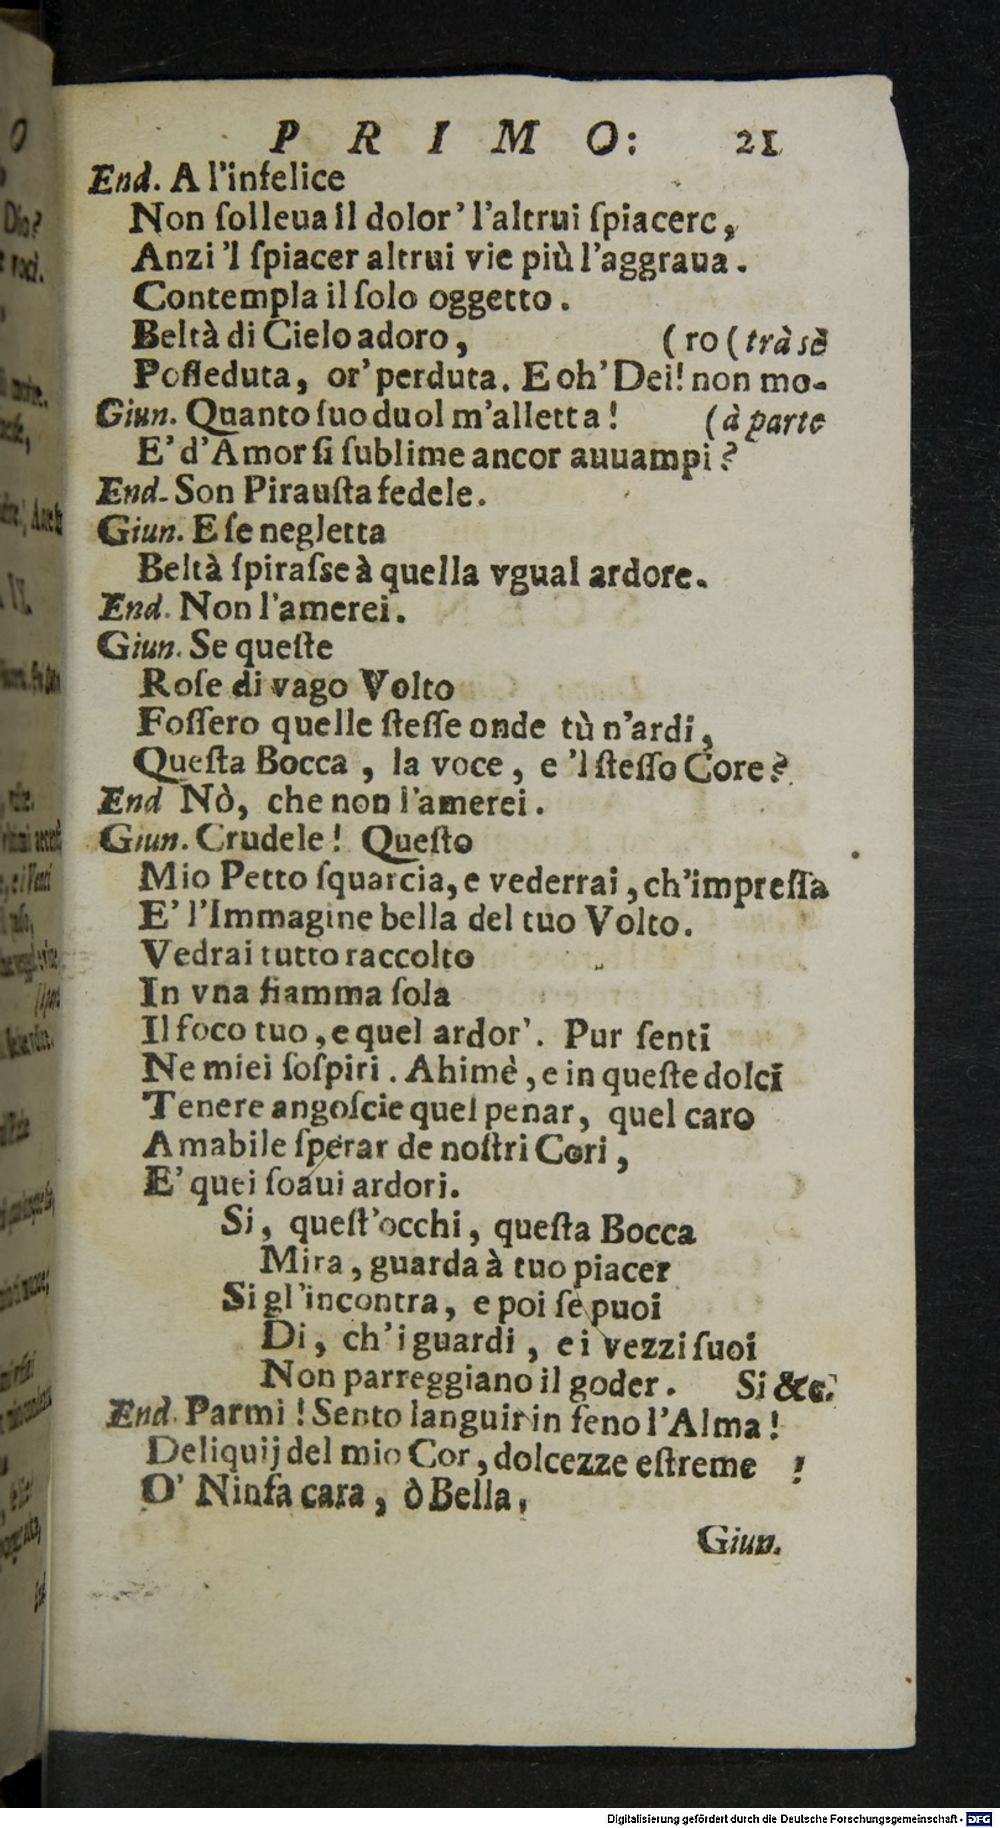 P R I M O: 21
End. A l'infelice
Non ſolleua il dolor' l'altrui ſpiacere,
Anzi 'l ſpiacer altrui vie più l'aggraua.
Contempla il ſolo oggetto.
Beltà di Cielo adoro, (ro (trà sè
Poſſeduta, or' perduta. E oh' Dei! non mo-
Giun. Quanto ſuo duol m'alletta! (à parte
E' d'Amor ſi ſublime ancor auuampi?
End. Son Pirauſta fedele.
Giun. E ſe negletta
Beltà ſpiraſse à quella vgual ardore.
End. Non l'amerei.
Giun. Se queſte
Roſe di vago Volto
Foſſero quelle ſteſſe onde tù n'ardi,
Queſta Bocca, la voce, e 'l ſteſſo Core?
End Nò, che non l'amerei.
Giun. Crudele! Queſto
Mio Petto ſquarcia, e vederrai, ch'impreſſa
E' l'Immagine bella del tuo Volto.
Vedrai tutto raccolto
In vna fiamma ſola
Il foco tuo, e quel ardor'. Pur ſenti
Ne miei ſoſpiri. Ahimè, e in queſte dolci
Tenere angoſcie quel penar, quel caro
Amabile ſperar de noſtri Cori,
E' quei ſoaui ardori.
Si, queſt'occhi, queſta Bocca
Mira, guarda à tuo piacer
Si gl'incontra, e poi ſe puoi
Di, ch'i guardi, e i vezzi ſuoi
Non parreggiano il goder. Si &c.
End. Parmi! Sento languir in ſeno l'Alma!
Deliquij del mio Cor, dolcezze eſtreme!
O' Ninfa cara, ò Bella,
Giun.
Digitalisierung gefördert durch die Deutsche Forschungsgemeinschaft - DFG